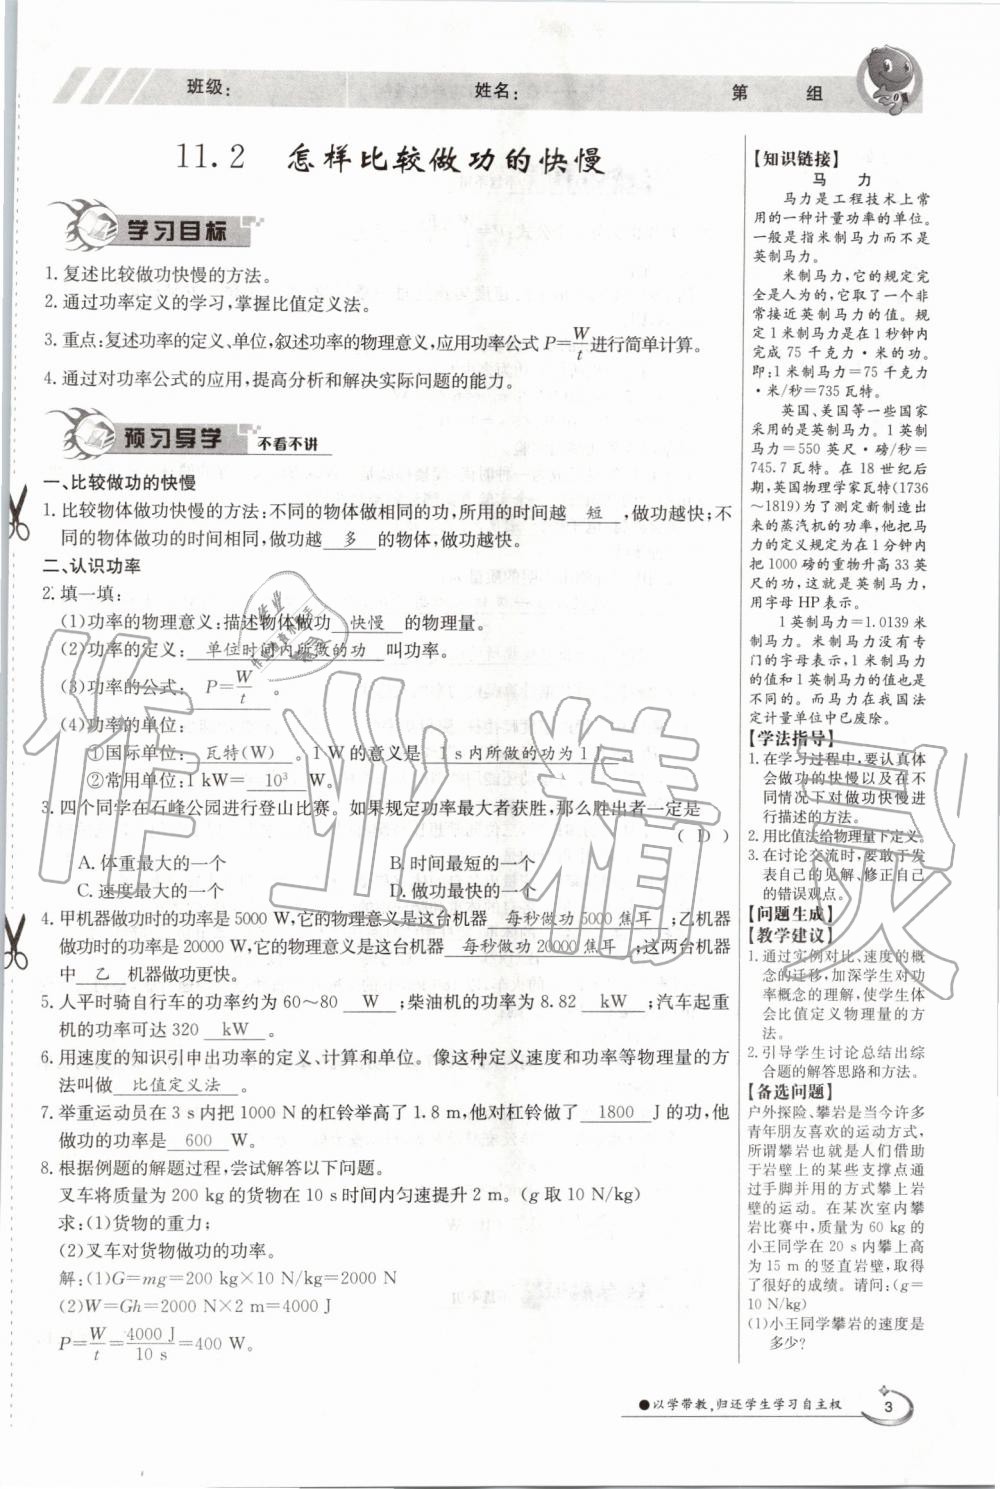 班级:
姓名:
第 组
11.2 怎样比较做功的快慢
学习目标
1.复述比较做功快慢的方法。
2.通过功率定义的学习,掌握比值定义法。
3.重点:复述功率的定义、单位,叙述功率的物理意义,应用功率公式P=W/t进行简单计算。
4.通过对功率公式的应用,提高分析和解决实际问题的能力。
预习导学 不看不讲
一、比较做功的快慢
1.比较物体做功快慢的方法:不同的物体做相同的功,所用的时间越 短 ,做功越快;不
同的物体做功的时间相同,做功越 多 的物体,做功越快。
二、认识功率
2.填一填:
(1)功率的物理意义:描述物体做功 快慢 的物理量。
(2)功率的定义: 单位时间内所做的功 叫功率。
(3)功率的公式: P=W/t 。
(4)功率的单位:
①国际单位: 瓦特(W) 。1 W的意义是 1 s内所做的功为1 J 。
②常用单位:1 kW= 10³ W。
3.四个同学在石峰公园进行登山比赛。如果规定功率最大者获胜,那么胜出者一定是
( D )
A.体重最大的一个 B.时间最短的一个
C.速度最大的一个 D.做功最快的一个
4.甲机器做功时的功率是5000 W,它的物理意义是这台机器 每秒做功5000焦耳 ;乙机器
做功时的功率是20000 W,它的物理意义是这台机器 每秒做功20000焦耳 ;这两台机器
中 乙 机器做功更快。
5.人平时骑自行车的功率约为60～80 W ;柴油机的功率为8.82 kW ;汽车起重
机的功率可达320 kW 。
6.用速度的知识引申出功率的定义、计算和单位。像这种定义速度和功率等物理量的方
法叫做 比值定义法 。
7.举重运动员在3 s内把1000 N的杠铃举高了1.8 m,他对杠铃做了 1800 J的功,他
做功的功率是 600 W。
8.根据例题的解题过程,尝试解答以下问题。
叉车将质量为200 kg的货物在10 s时间内匀速提升2 m。(g取10 N/kg)
求:(1)货物的重力;
(2)叉车对货物做功的功率。
解:(1)G=mg=200 kg×10 N/kg=2000 N
(2)W=Gh=2000 N×2 m=4000 J
P=W/t=4000 J/10 s=400 W。
【知识链接】
马 力
马力是工程技术上常
用的一种计量功率的单位。
一般是指米制马力而不是
英制马力。
米制马力,它的规定完
全是人为的,它取了一个非
常接近英制马力的值。规
定1米制马力是在1秒钟内
完成75千克力·米的功。
即:1米制马力=75千克力
·米/秒=735瓦特。
英国、美国等一些国家
采用的是英制马力。1英制
马力=550英尺·磅/秒=
745.7瓦特。在18世纪后
期,英国物理学家瓦特(1736
～1819)为了测定新制造出
来的蒸汽机的功率,他把马
力的定义规定为在1分钟内
把1000磅的重物升高33英
尺的功,这就是英制马力,
用字母HP表示。
1英制马力=1.0139米
制马力。米制马力没有专
门的字母表示,1米制马力
的值和1英制马力的值也是
不同的。而马力在我国法
定计量单位中已废除。
【学法指导】
1.在学习过程中,要认真体
会做功的快慢以及在不
同情况下对做功快慢进
行描述的方法。
2.用比值法给物理量下定义。
3.在讨论交流时,要敢于发
表自己的见解、修正自己
的错误观点。
【问题生成】
【教学建议】
1.通过实例对比、速度的概
念的迁移,加深学生对功
率概念的理解,使学生体
会比值定义物理量的方
法。
2.引导学生讨论总结出综
合题的解答思路和方法。
【备选问题】
户外探险、攀岩是当今许多
青年朋友喜欢的运动方式,
所谓攀岩也就是人们借助
于岩壁上的某些支撑点通
过手脚并用的方式攀上岩
壁的运动。在某次室内攀
岩比赛中,质量为60 kg的
小王同学在20 s内攀上高
为15 m的竖直岩壁,取得
了很好的成绩。请问:(g=
10 N/kg)
(1)小王同学攀岩的速度是
多少?
●以学带教,归还学生学习自主权
3
作业精灵